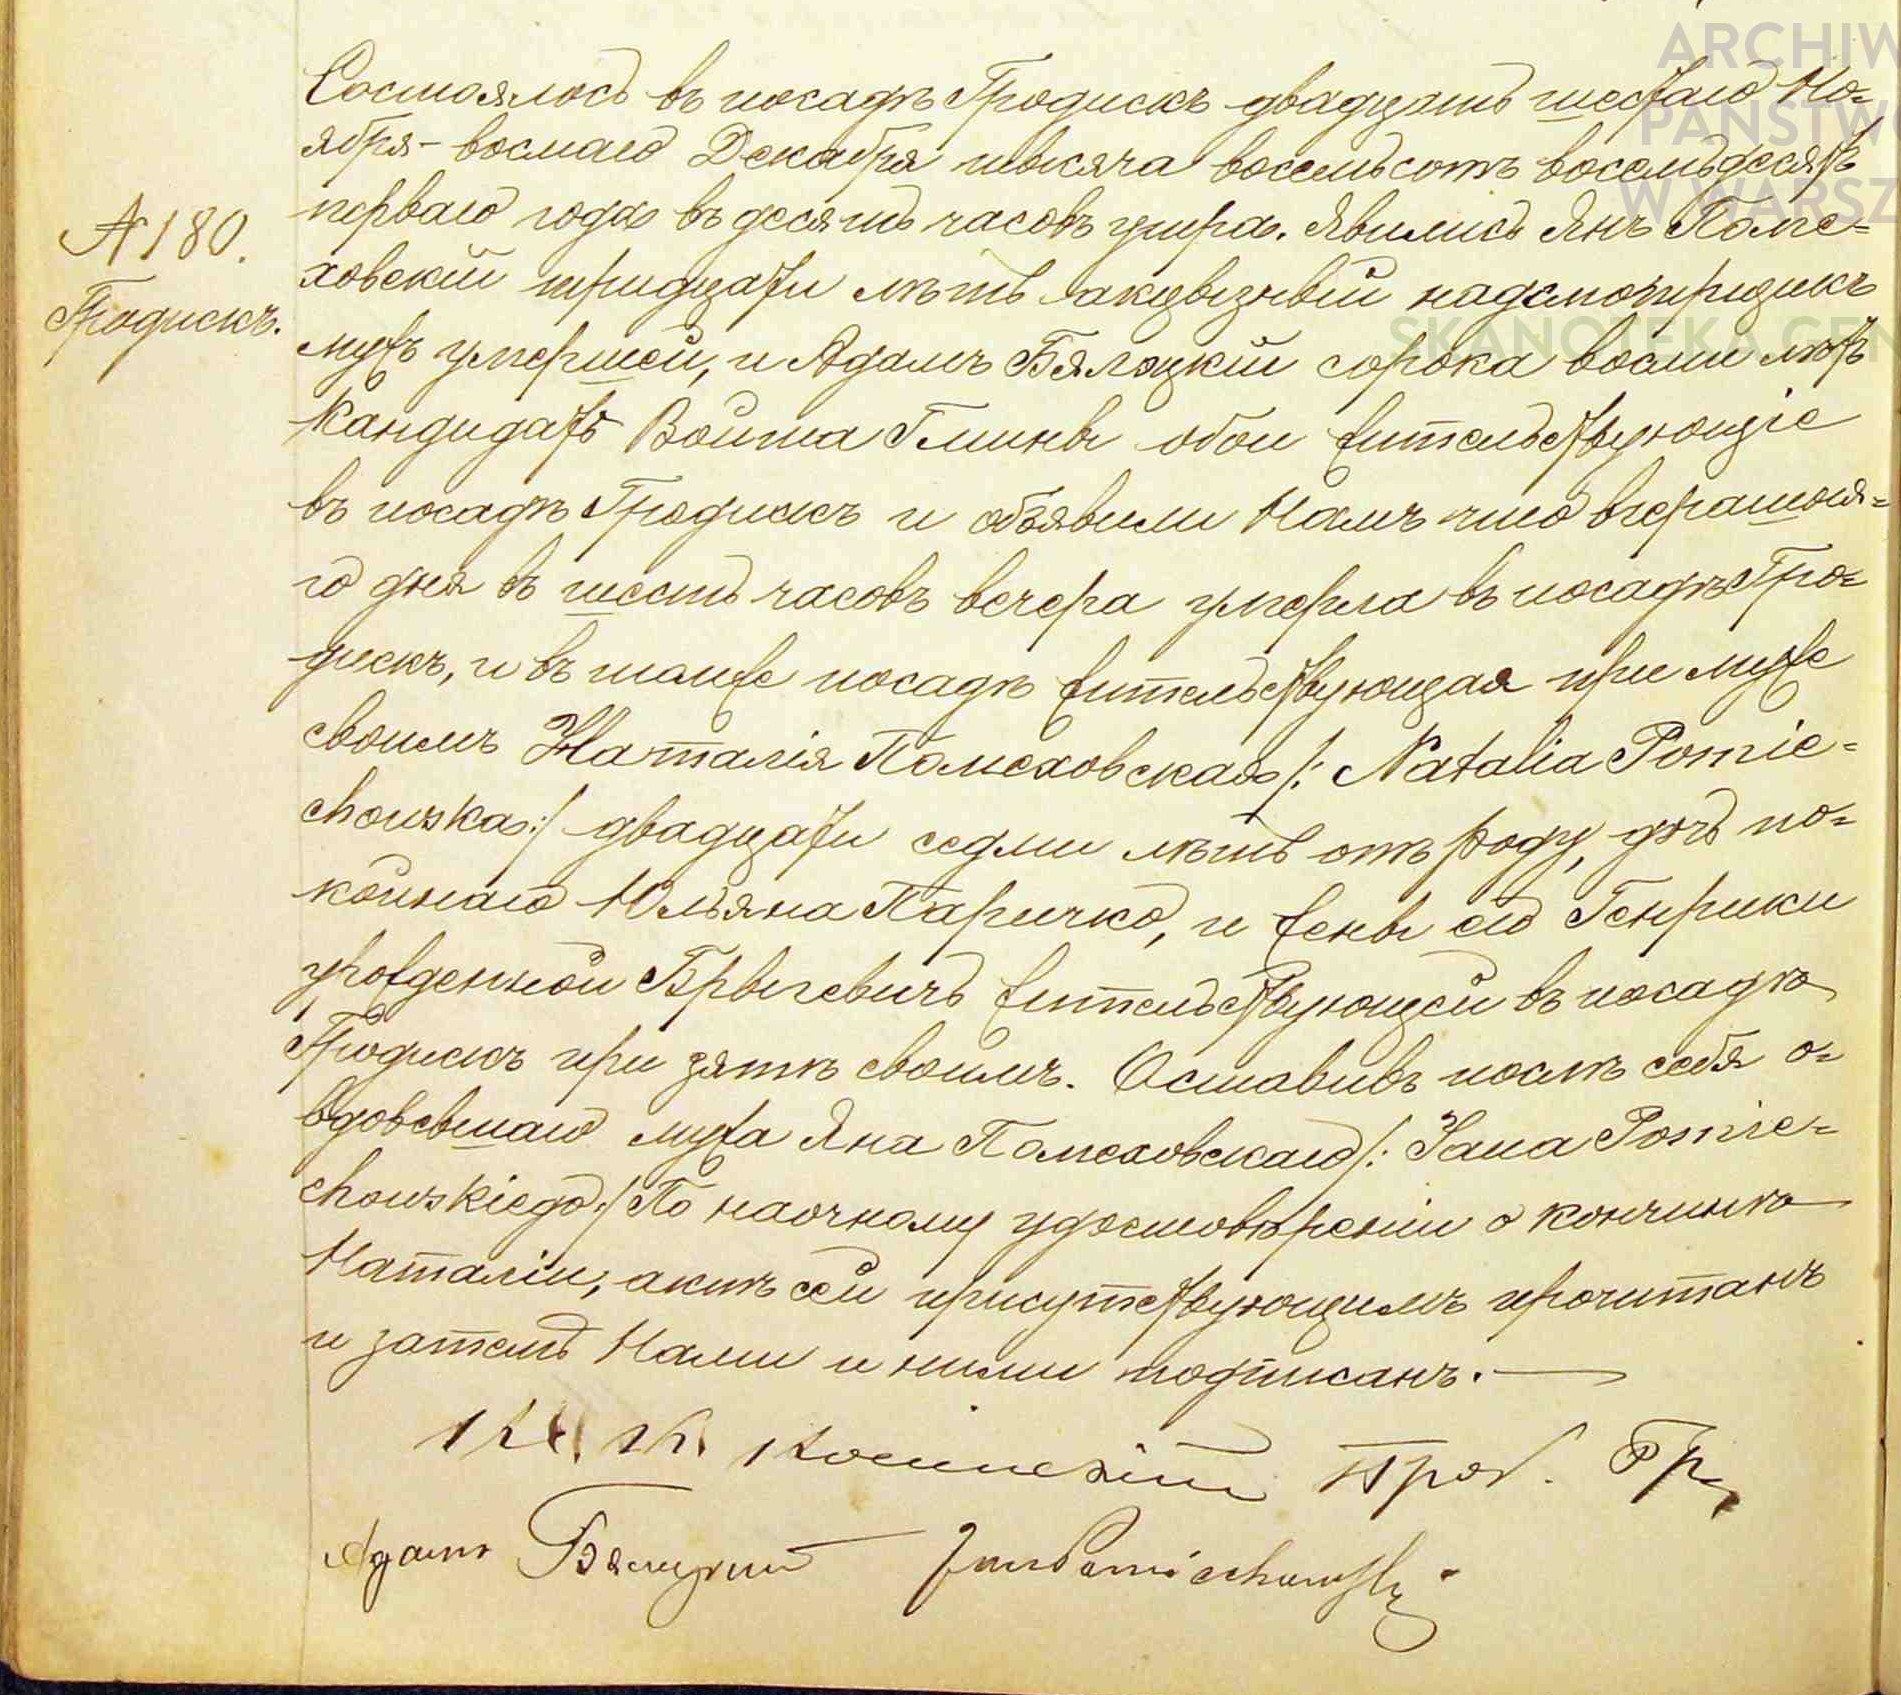 ARCHIW
PAŃSTW
W WARSZ
SKANOTEKA GEN
№ 180.
Гродискъ.
Состоялось въ посадѣ Гродискъ двадцать шестаго Но=
ября - восмаго Декабря тысяча восемьсотъ восемьдесятъ
перваго года въ десять часовъ утра. Явились Янъ Поме=
ховскій тридцати лѣтъ акцызный надсмотрщикъ
мужъ умершей, и Адамъ Бялэцкій сорока восми лѣтъ
Кандидатъ Войта Гмины обои жительствующіе
въ посадѣ Гродискъ и объявили Намъ что вчерашня=
го дня въ шесть часовъ вечера умерла въ посадѣ Гро=
дискъ, и въ томже посадѣ жительствующая при муже
своимъ Наталія Помеховская /: Natalia Pomie=
chowska :/ двадцати седми лѣтъ отъ роду, дочь по=
койнаго Юльяна Паричко, и жены его Генрики
урожденной Брыгевичъ жительствующей въ посадѣ
Гродискъ при зятѣ своимъ. Оставивъ послѣ себя о=
вдовевшаго мужа Яна Помеховскаго /: Jana Pomie=
chowskiego :/ По наочному удостовѣреніи о кончинѣ
Наталіи, актъ сей присутствующимъ прочитанъ
и затемъ Нами и ними подписанъ. —
Адамъ Бялецкій Jan Pomiechowski